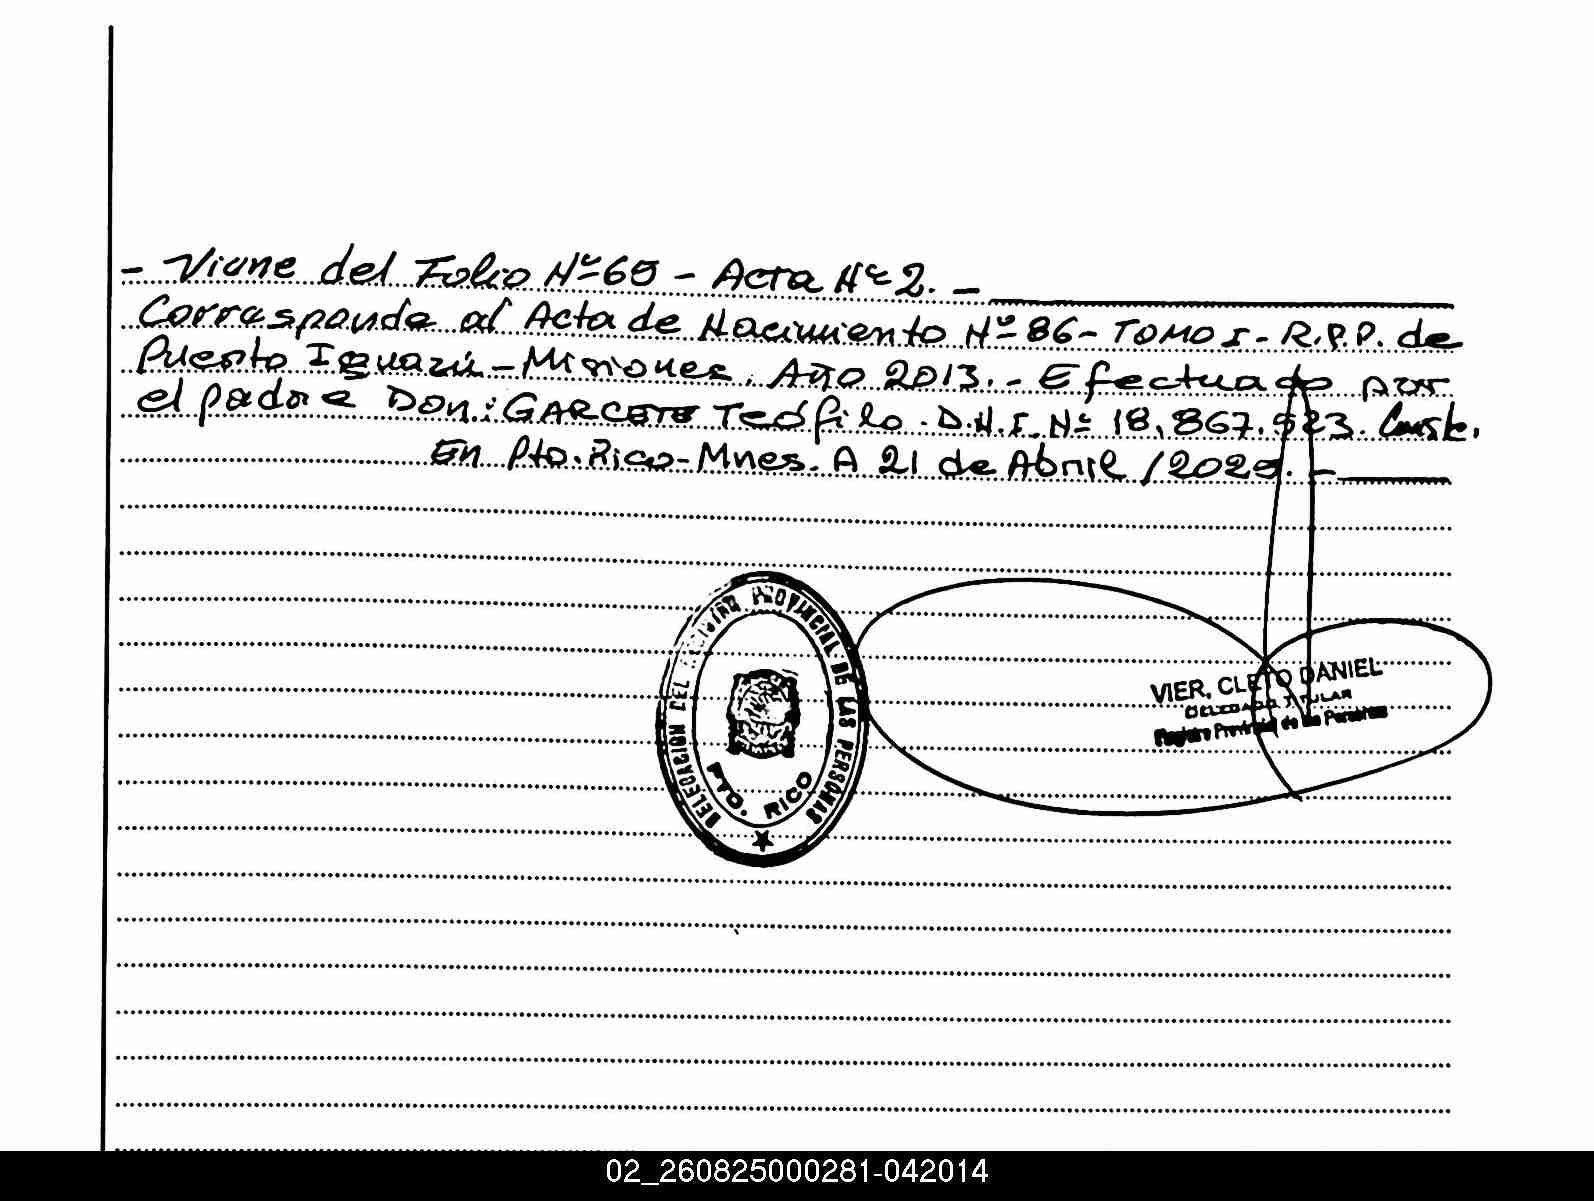 - Viene del Folio Nº 65 - Acta Nº 2. -
Corresponde al Acta de Nacimiento Nº 86 - TOMO I - R.P.P. de
Puerto Iguazú - Misiones. Año 2013. - Efectuado por
el padre Don: GARCETE Teófilo. D.N.I. Nº 18.867.523. Conste.
En Pto. Rico - Mnes. A 21 de Abril / 2025. -
DELEGACION DEL REGISTRO PROVINCIAL DE LAS PERSONAS
PTO. RICO
VIER, CLETO DANIEL
DELEGADO TITULAR
Registro Provincial de las Personas
02_260825000281-042014